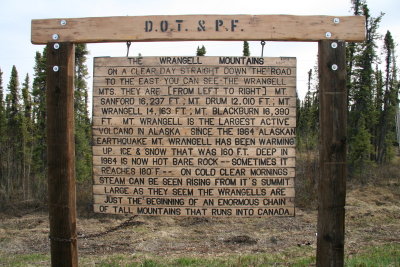 D.O.T. & P.F.
THE WRANGELL MOUNTAINS
ON A CLEAR DAY STRAIGHT DOWN THE ROAD
TO THE EAST YOU CAN SEE THE WRANGELL
MTS. THEY ARE [FROM LEFT TO RIGHT] MT.
SANFORD 16,237 FT.; MT. DRUM 12,010 FT.; MT
WRANGELL 14,163 FT.; MT. BLACKBURN 16,390
FT. MT. WRANGELL IS THE LARGEST ACTIVE
VOLCANO IN ALASKA. SINCE THE 1964 ALASKAN
EARTHQUAKE MT. WRANGELL HAS BEEN WARMING
UP. ICE & SNOW THAT WAS 150 FT. DEEP IN
1964 IS NOW HOT BARE ROCK -- SOMETIMES IT
REACHES 180°F -- ON COLD CLEAR MORNINGS
STEAM CAN BE SEEN RISING FROM IT'S SUMMIT.
LARGE AS THEY SEEM THE WRANGELLS ARE
JUST THE BEGINNING OF AN ENORMOUS CHAIN
OF TALL MOUNTAINS THAT RUNS INTO CANADA.